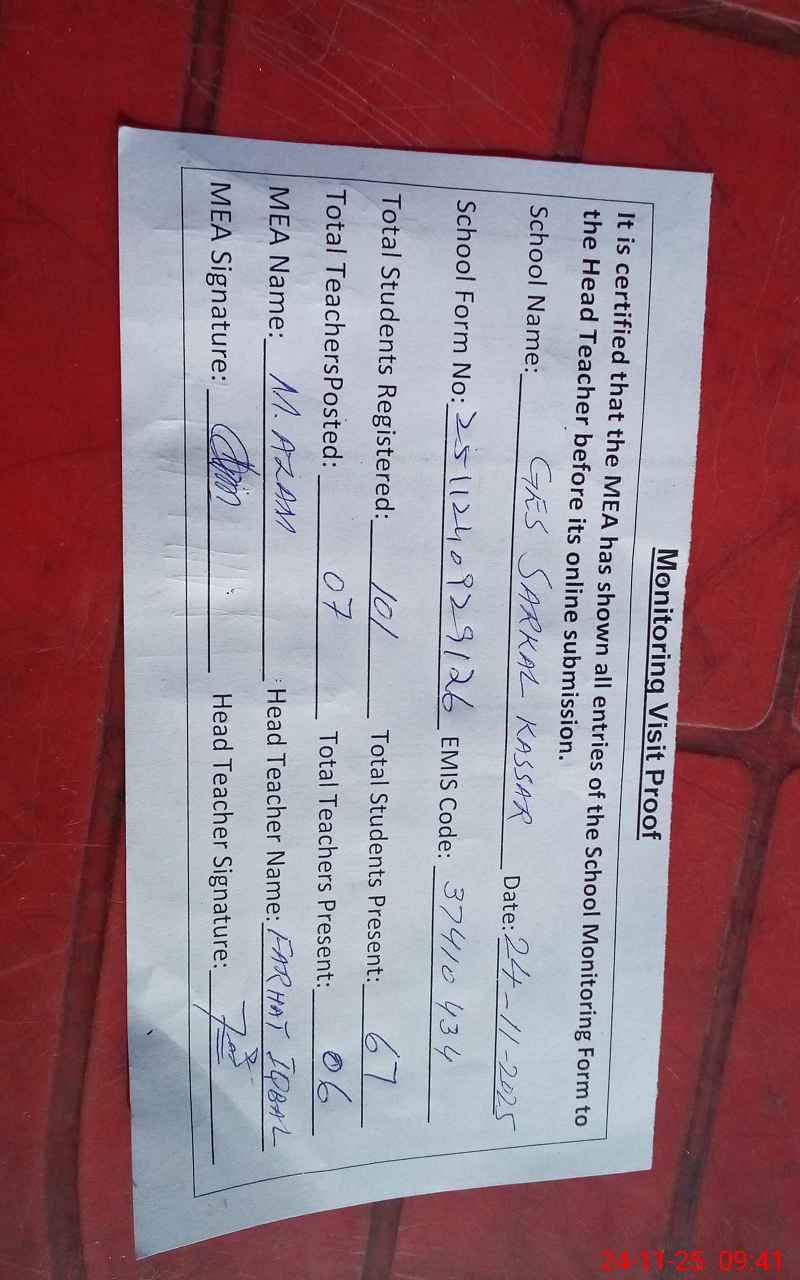 Monitoring Visit Proof
It is certified that the MEA has shown all entries of the School Monitoring Form to
the Head Teacher before its online submission.
School Name: GES SARKAL KASSAR Date: 24-11-2025
School Form No: 2511240929126 EMIS Code: 37410434
Total Students Registered: 101 Total Students Present: 67
Total TeachersPosted: 07 Total Teachers Present: 06
MEA Name: M. AZAM Head Teacher Name: FARHAT IQBAL
MEA Signature: Head Teacher Signature:
24-11-25 09:41